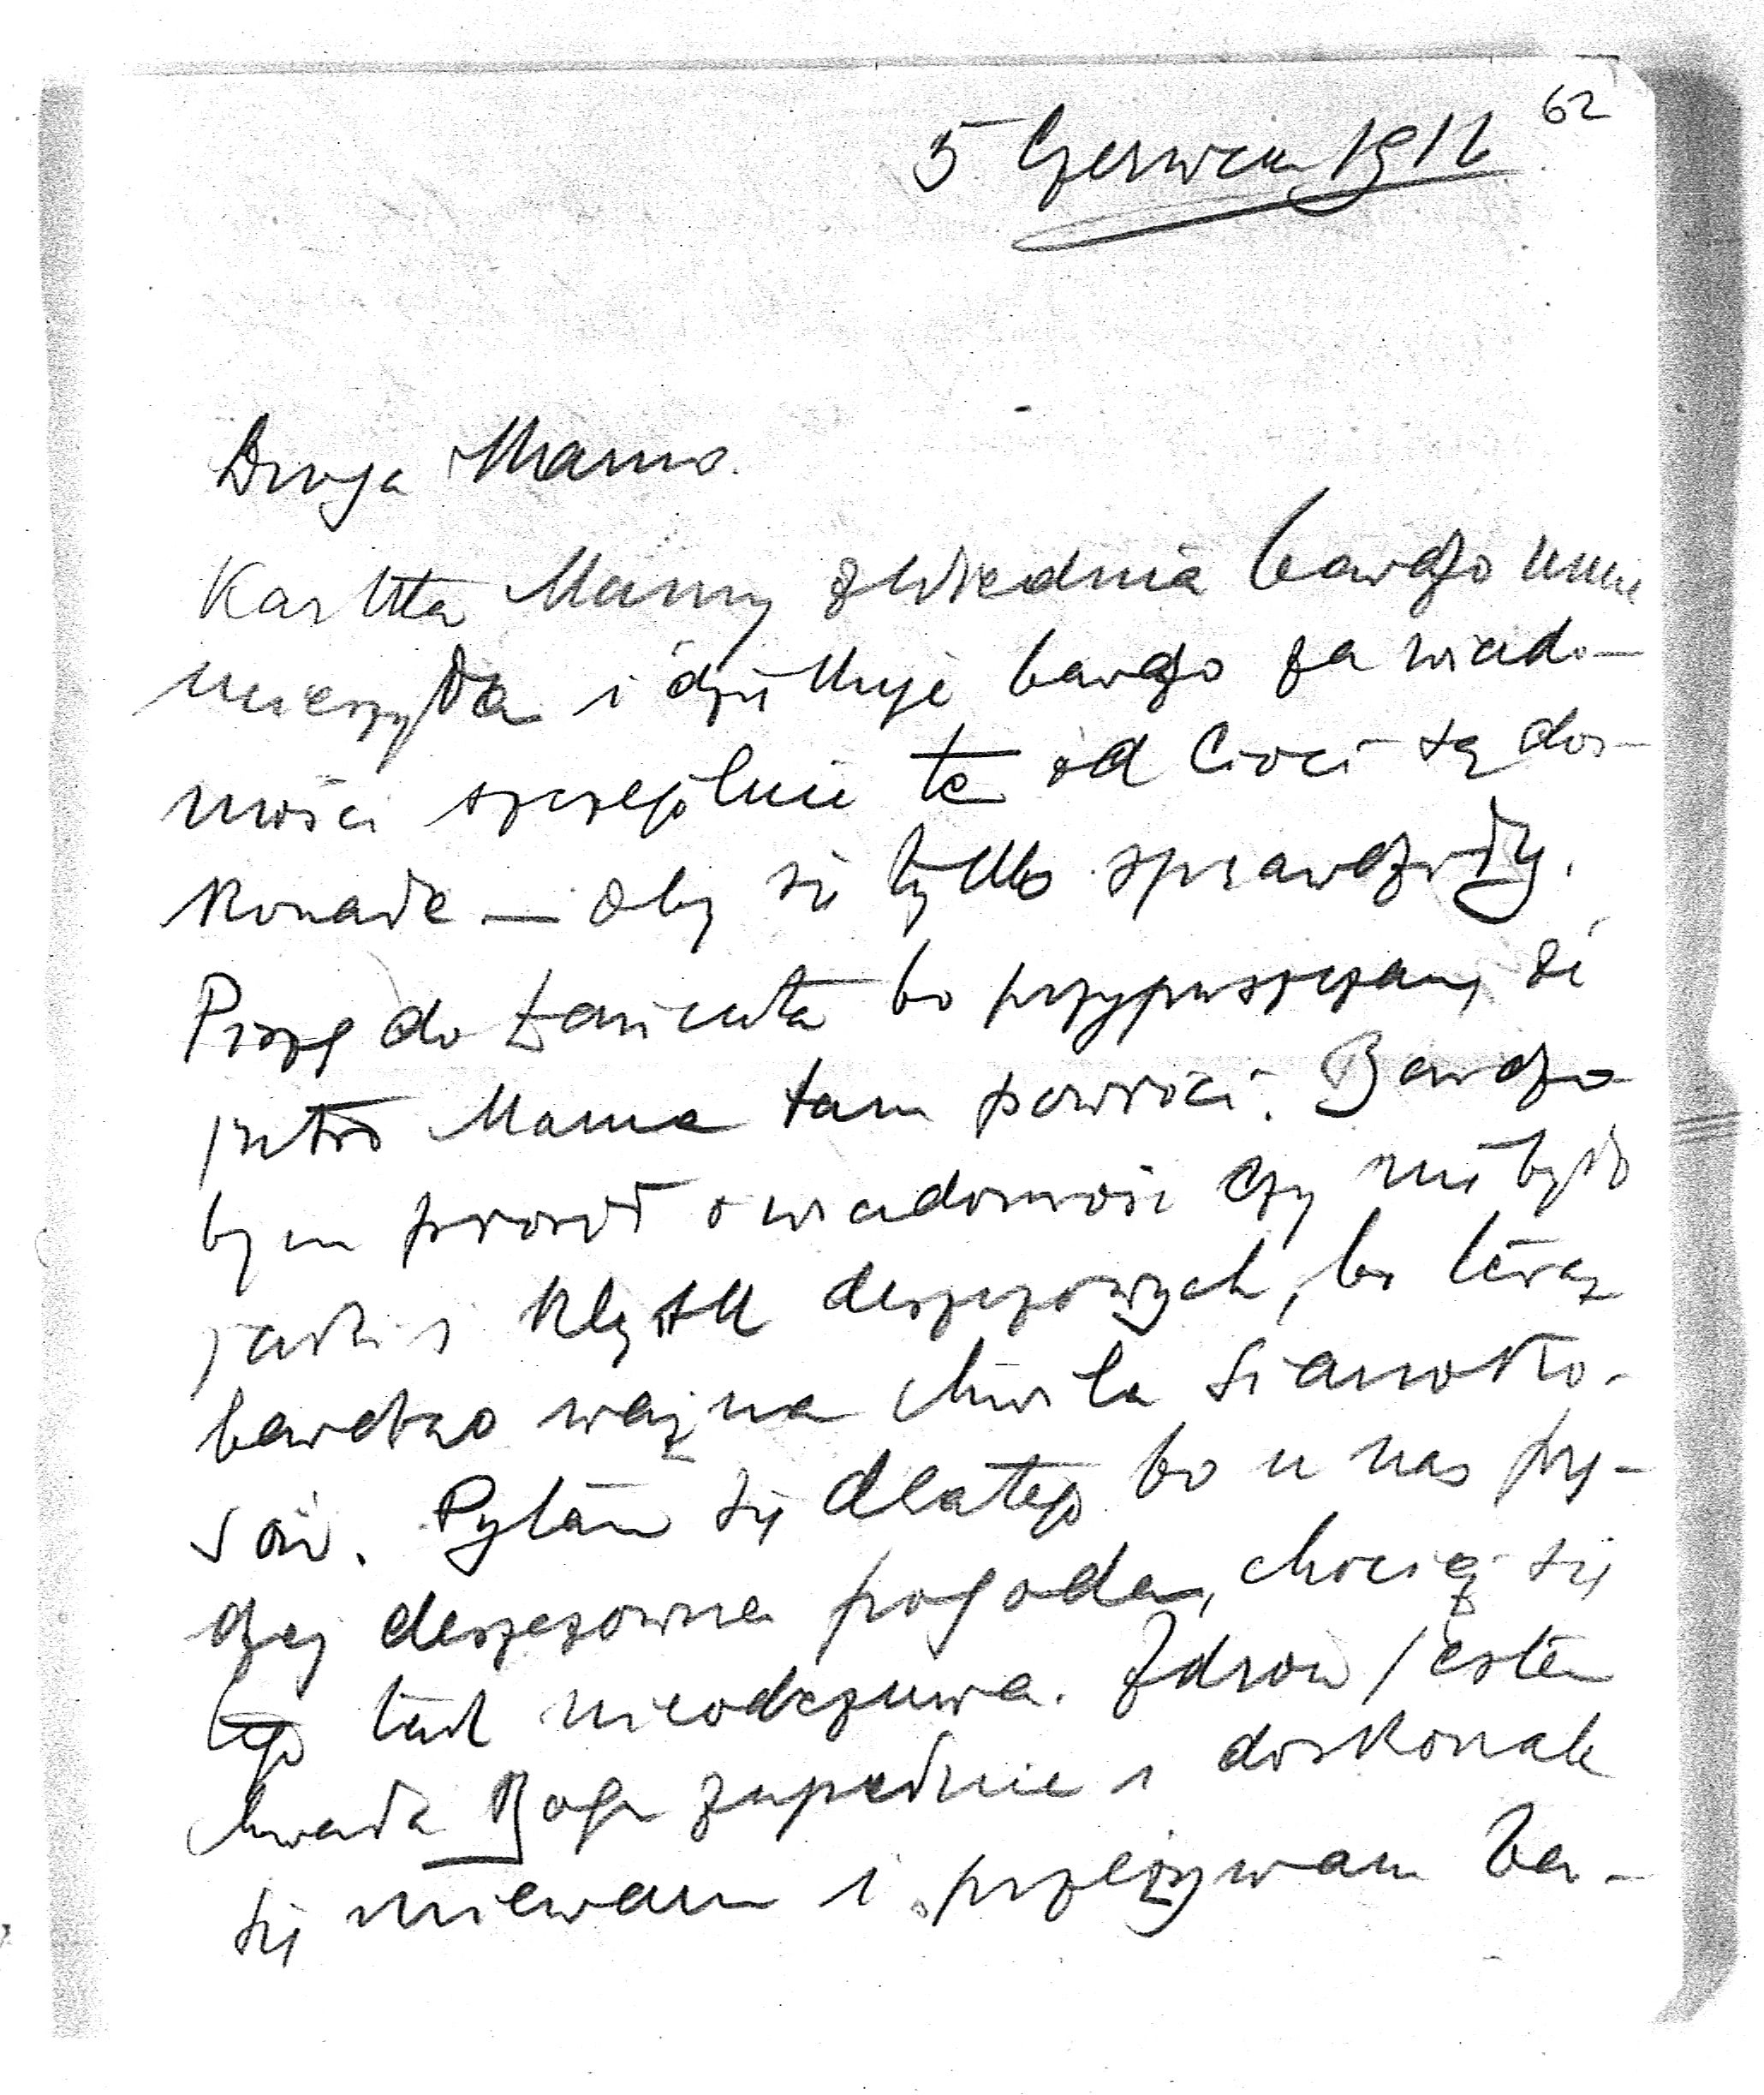 62
5 Czerwca 1912
Droga Mamo.
Kartka Mamy z Wiednia bardzo mnie
ucieszyła i dziękuję bardzo za wiado-
mości szczególnie te od Cioci są dos-
konałe — oby się tylko sprawdziły.
Piszę do Łańcuta bo przypuszczam, że
jutro Mama tam powróci. Bardzo
bym prosił o wiadomość czy nie było
jakiś klęsk deszczowych, bo teraz
bardzo ważna chwila sianoko-
sów. Pytam się dlatego bo u nas
deszczowa pogoda, chociaż się
tego tak nieodczuwa. Zdrów jestem
chwała Bogu zupełnie i doskonale
się miewam i przeżywam ba-